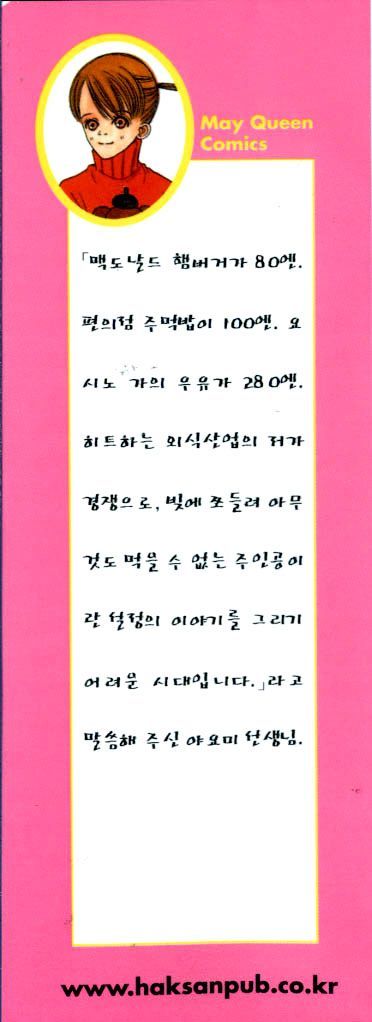 May Queen
Comics
「맥도날드 햄버거가 80엔.
편의점 주먹밥이 100엔. 요
시노 가의 우유가 280엔.
히트하는 외식산업의 저가
경쟁으로, 빚에 쪼들려 아무
것도 먹을 수 없는 주인공이
란 설정의 이야기를 그리기
어려운 시대입니다.」라고
말씀해 주신 야요미 선생님.
www.haksanpub.co.kr